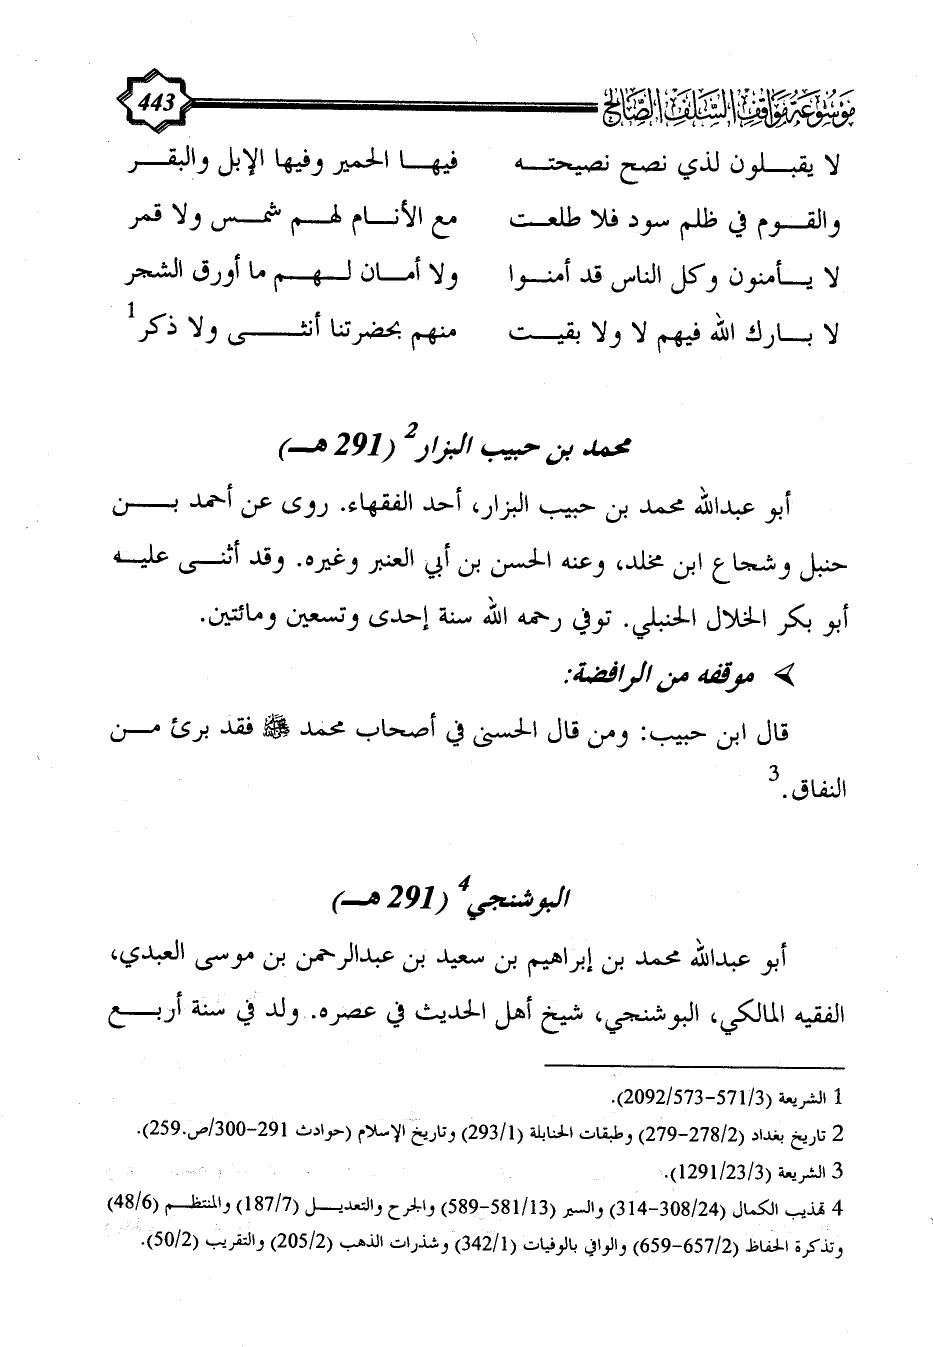 موسوعة مواقف السلف الصالح 443
لا يقبلون لذي نصح نصيحته فيها الحمير وفيها الإبل والبقر
والقوم في ظلم سود فلا طلعت مع الأنام لهم شمس ولا قمر
لا يأمنون وكل الناس قد أمنوا ولا أمان لهم ما أورق الشجر
لا بارك الله فيهم لا ولا بقيت منهم بحضرتنا أنثى ولا ذكر1
محمد بن حبيب البزار2 (291 هـ)
أبو عبدالله محمد بن حبيب البزار، أحد الفقهاء. روى عن أحمد بن
حنبل وشجاع ابن مخلد، وعنه الحسن بن أبي العنبر وغيره. وقد أثنى عليه
أبو بكر الخلال الحنبلي. توفي رحمه الله سنة إحدى وتسعين ومائتين.
موقفه من الرافضة:
قال ابن حبيب: ومن قال الحسنى في أصحاب محمد ﷺ فقد برئ من
النفاق.3
البوشنجي4 (291 هـ)
أبو عبدالله محمد بن إبراهيم بن سعيد بن عبدالرحمن بن موسى العبدي،
الفقيه المالكي، البوشنجي، شيخ أهل الحديث في عصره. ولد في سنة أربع
1 الشريعة (3/571-573/2092).
2 تاريخ بغداد (2/278-279) وطبقات الحنابلة (1/293) وتاريخ الإسلام (حوادث 291-300/ص.259).
3 الشريعة (3/23/1291).
4 تهذيب الكمال (24/308-314) والسير (13/581-589) والجرح والتعديل (7/187) والمنتظم (6/48)
وتذكرة الحفاظ (2/657-659) والوافي بالوفيات (1/342) وشذرات الذهب (2/205) والتقريب (2/50).